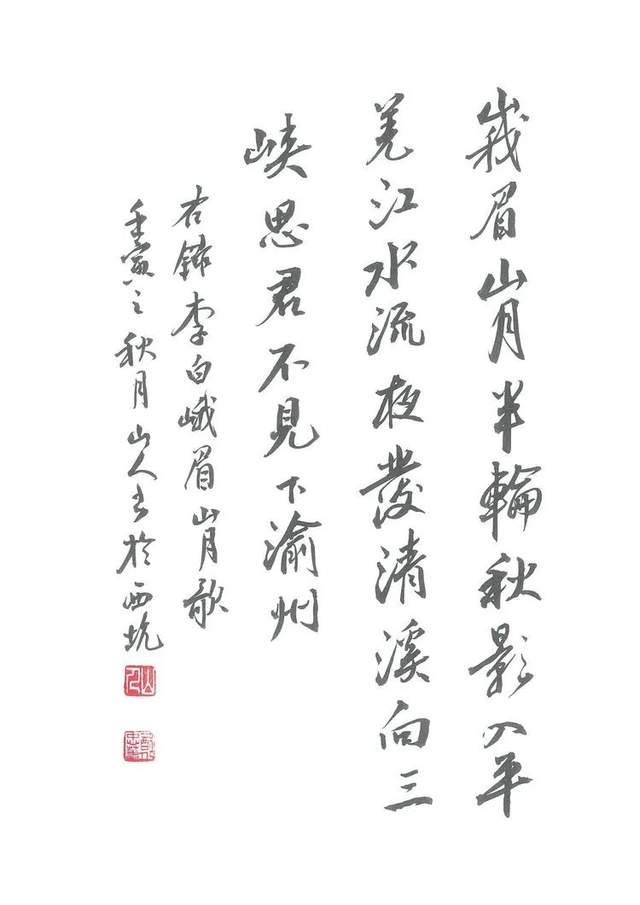 峩眉山月半輪秋影入平
羌江水流夜發清溪向三
峽思君不見下渝州
右錄李白峨眉山月歌
壬寅之秋月山人书於西坑
山人